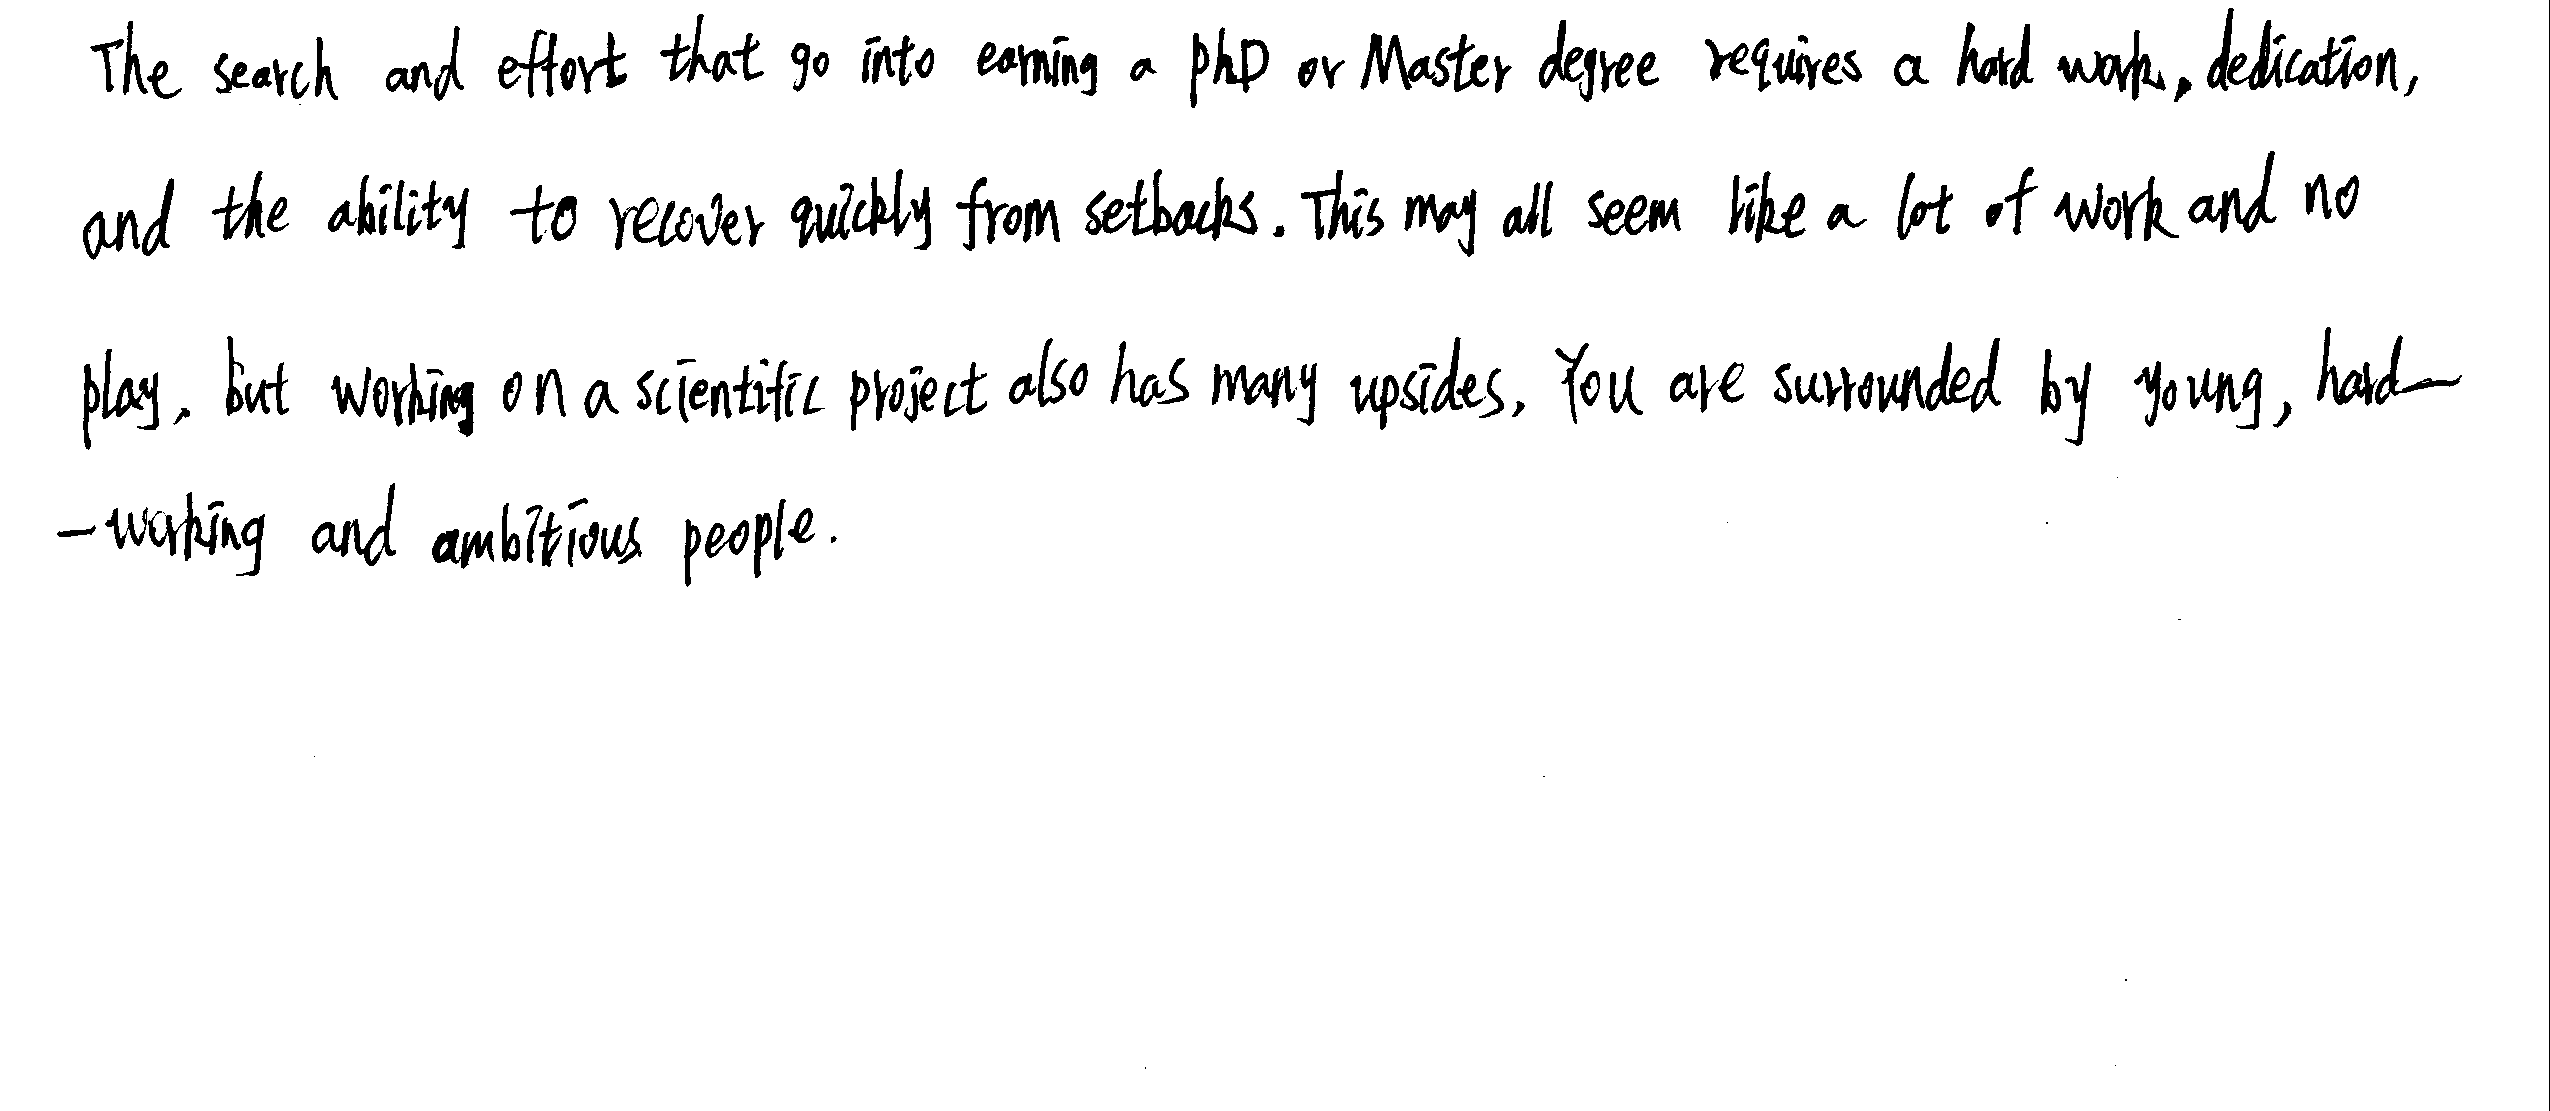 The search and effort that go into earning a PhD or Master degree requires a hard work, dedication,
and the ability to recover quickly from setbacks. This may all seem like a lot of work and no
play, but working on a scientific project also has many upsides. You are surrounded by young, hard-
-working and ambitious people.